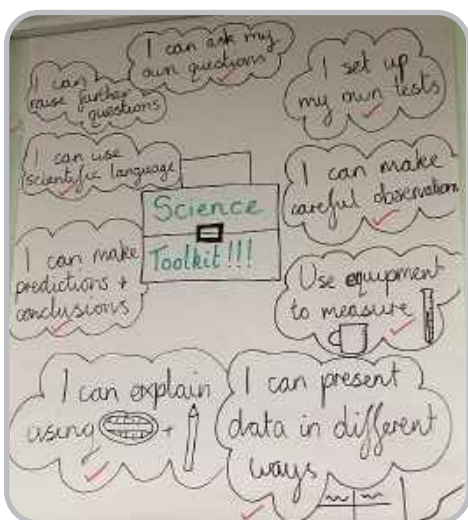 I can ask my
own questions
I can
raise further
questions
I set up
my own tests
I can use
scientific language
I can make
careful observation
Science
Toolkit!!!
I can make
predictions +
conclusions
Use equipment
to measure
I can explain
using +
I can present
data in different
ways